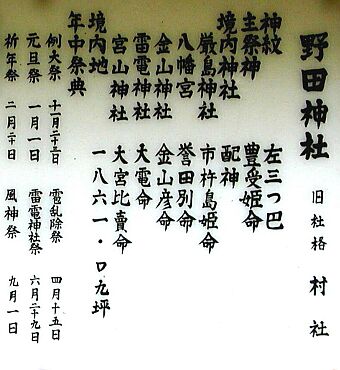 野田神社 旧社格 村社
神紋 左三つ巴
主祭神 豊受姫命
境内神社 配神
厳島神社 市杵島姫命
八幡宮 誉田別命
金山神社 金山彦命
雷電神社 大電命
宮山神社 大宮比賣命
境内地 一八六一・口九坪
年中祭典
例大祭 十一月二十三日 雹乱除祭 四月十五日
元旦祭 一月一日 雷電神社祭 六月二十九日
祈年祭 二月二十日 風神祭 九月一日